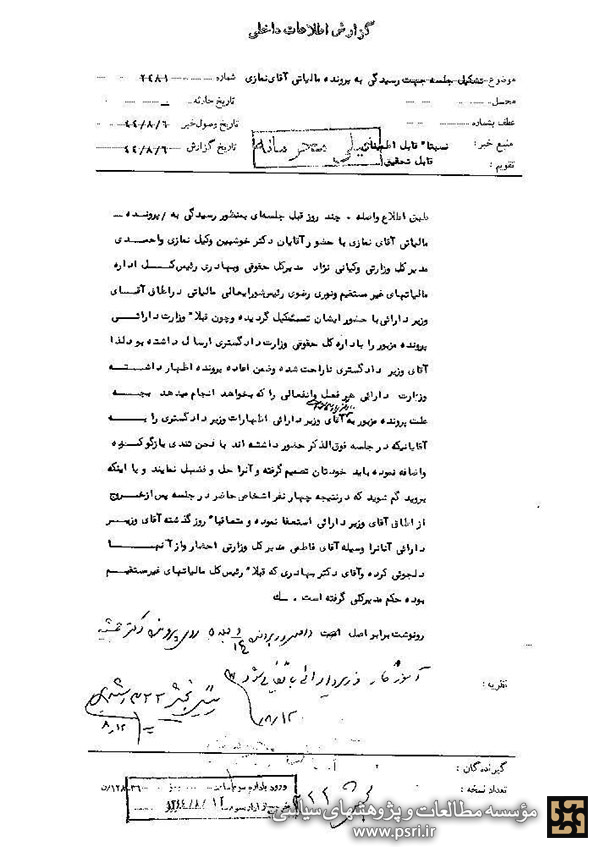 گزارش اطلاعات داخلی
موضوع: تشکیل جلسه جهت رسیدگی به پرونده مالیاتی آقای نمازی شماره ۲۴۸۱
محل تاریخ حادثه
عطف بشماره تاریخ وصول خبر ۴۴/۸/۶
منبع خبر: نسبتا" قابل اطمینان تاریخ گزارش ۴۴/۸/۶
تقویم: قابل تحقیق
خیلی محرمانه
طبق اطلاع واصله . چند روز قبل جلسه‌ای بمنظور رسیدگی به / پرونده
مالیاتی آقای نمازی با حضور آقایان دکتر خوشبین وکیل نمازی واحمدی
مدیرکل وزارتی وکیانی نژاد مدیرکل حقوقی وبهادری رئیس کل اداره
مالیاتهای غیر مستقیم ونوری رضوی رئیس شورایعالی مالیاتی دراطاق آقای
وزیر دارائی با حضور ایشان تشکیل گردیده وچون قبلا" وزارت دارائی
پرونده مزبور را باداره کل حقوقی وزارت دادگستری ارسال داشته بود لذا
آقای وزیر دادگستری ناراحت شده وضمن اعاده پرونده اظهار داشته
وزارت دارائی هر فعل وانفعالی را که بخواهد انجام میدهد بچه
علت پرونده مزبور به آقای وزیر دارائی اظهارات وزیر دادگستری را به
آقایانیکه در جلسه فوق‌الذکر حضور داشته اند با لحن تندی بازگو کرده
واضافه نموده باید خودتان تصمیم گرفته و آنرا حل و فصل نمایند و یا اینکه
بروید گم شوید که درنتیجه چهار نفر اشخاص حاضر در جلسه پس از خروج
از اطاق آقای وزیر دارائی استعفا نموده و متعاقبا" روز گذشته آقای وزیر
دارائی آنانرا وسیله آقای فاطمی مدیرکل وزارتی احضار واز آنها
دلجوئی کرده وآقای دکتر بهادری که قبلا" رئیس کل مالیاتهای غیرمستقیم
بوده حکم مدیرکلی گرفته است .
رونوشت برابر اصل است
نظریه:
۸/۱۲
۸/۱۲
گیرندگان:
تعداد نسخه:
مؤسسه مطالعات و پژوهشهای سیاسی
www.psri.ir